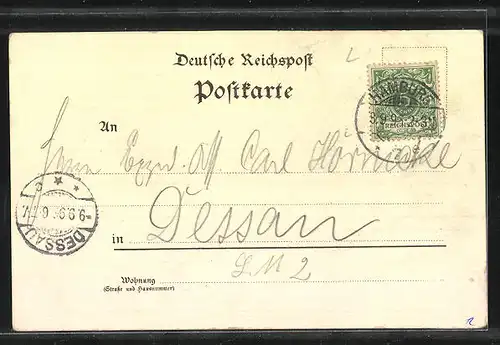 Deutsche Reichspost
Postkarte
HAMBURG
An
Herrn Exped. Aff. Carl
DESSAU
in Dessau
L M 2
Wohnung
(Straße und Hausnummer)